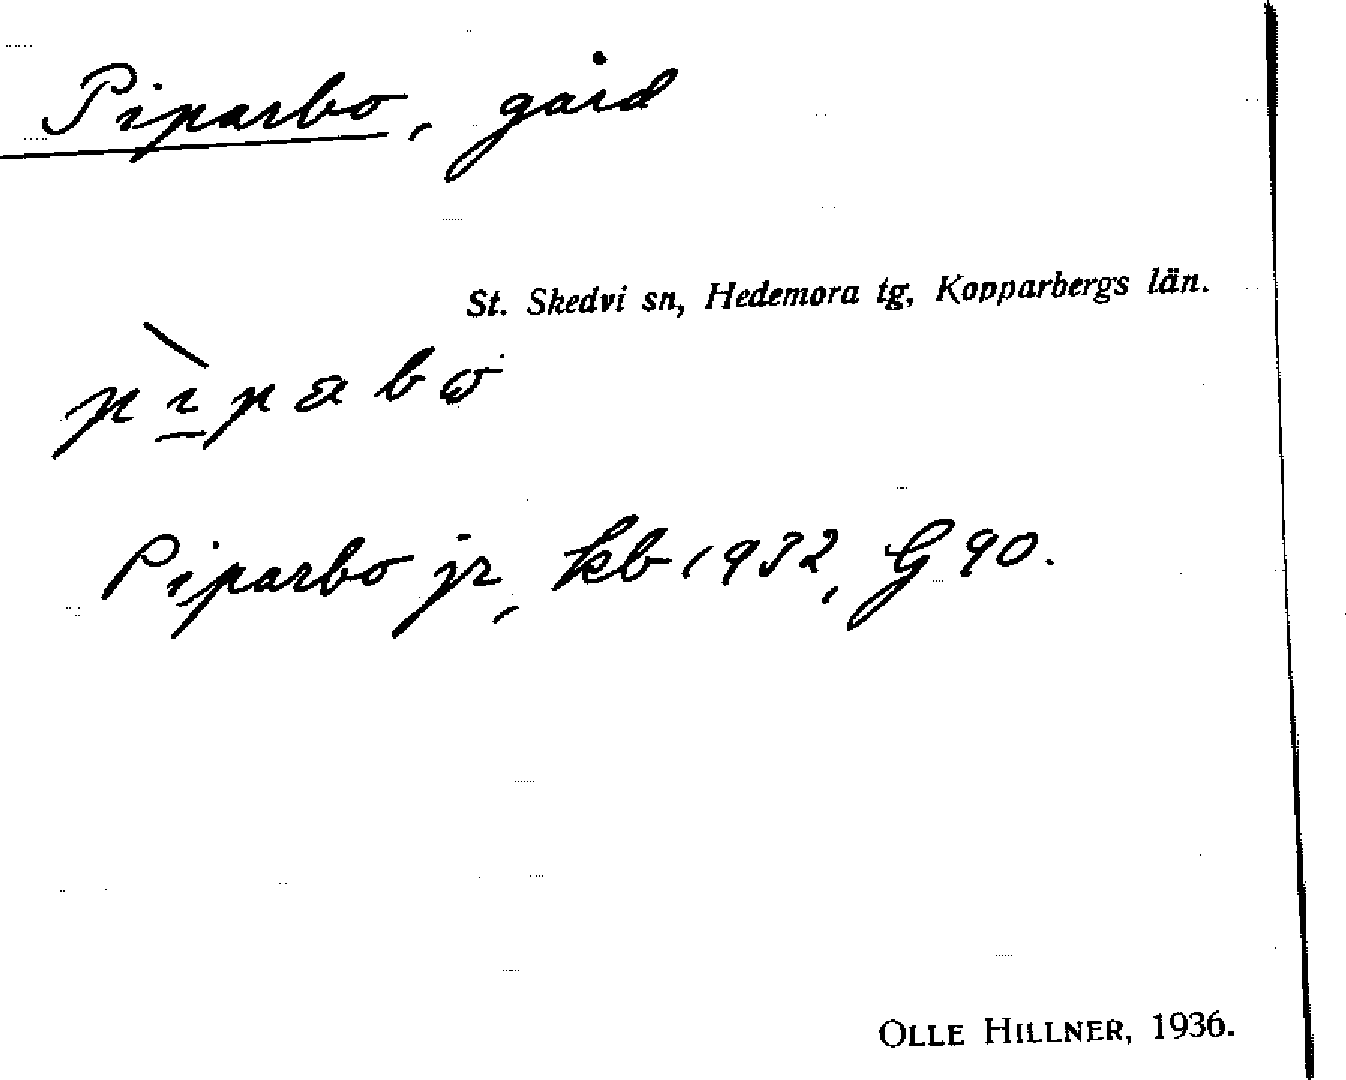 Piparbo, gård
St. Skedvi sn, Hedemora tg, Kopparbergs län.
Piparbo jr, kb 1932, G 90.
OLLE HILLNER, 1936.